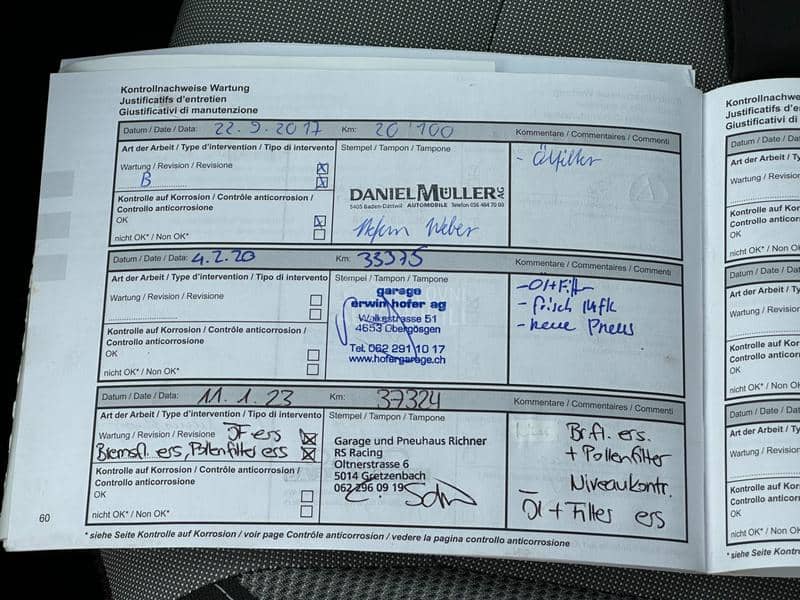 Kontrollnachweise Wartung
Justificatifs d'entretien
Giustificativi di manutenzione
Datum / Date / Data: 22.9.2017 Km: 20'100 Kommentare / Commentaires / Commenti
Art der Arbeit / Type d'intervention / Tipo di intervento Stempel / Tampon / Tampone
- Ölfilter
Wartung / Revision / Revisione
B
DANIEL MÜLLER AG
5405 Baden-Dättwil AUTOMOBILE Telefon 056 484 70 00
Kontrolle auf Korrosion / Contrôle anticorrosion /
Controllo anticorrosione
OK
Weber
nicht OK* / Non OK*
Datum / Date / Data: 4.2.20 Km: 33375 Kommentare / Commentaires / Commenti
Art der Arbeit / Type d'intervention / Tipo di intervento Stempel / Tampon / Tampone
Wartung / Revision / Revisione
garage
erwin hofer ag
Walkestrasse 51
4653 Obergösgen
Tel. 062 291 10 17
www.hofergarage.ch
- Öl+Filt
- frisch Mfk
- neue Pneus
Kontrolle auf Korrosion / Contrôle anticorrosion /
Controllo anticorrosione
OK
nicht OK* / Non OK*
Datum / Date / Data: 11.1.23 Km: 37324 Kommentare / Commentaires / Commenti
Art der Arbeit / Type d'intervention / Tipo di intervento Stempel / Tampon / Tampone
Wartung / Revision / Revisione JF ers
Bremsfl. ers, Pollenfilter ers
Garage und Pneuhaus Richner
RS Racing
Oltnerstrasse 6
5014 Gretzenbach
062 296 09 19
Br.fl. ers.
+ Pollenfilter
Niveaukontr.
Öl + Filter ers
Kontrolle auf Korrosion / Contrôle anticorrosion /
Controllo anticorrosione
OK
nicht OK* / Non OK*
60
* siehe Seite Kontrolle auf Korrosion / voir page Contrôle anticorrosion / vedere la pagina controllo anticorrosione
Kontrollnachweise
Justificatifs d'
Giustificativi di
Datum / Date / Data:
Art der Arbeit / Type
Wartung / Revision /
Kontrolle auf Korros
Controllo anticorros
OK
nicht OK* / Non OK*
Datum / Date / Dat
Art der Arbeit / Typ
Wartung / Revision
Kontrolle auf Korro
Controllo anticorro
OK
nicht OK* / Non OK
Datum / Date / Dat
Art der Arbeit / Ty
Wartung / Revision
Kontrolle auf Ko
Controllo antico
OK
nicht OK* / Non
* siehe Seite Kontro